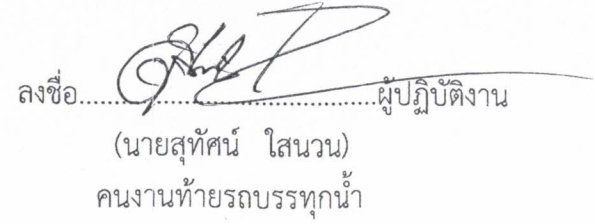 ลงชื่อ....................................ผู้ปฏิบัติงาน
(นายสุทัศน์ ใสนวน)
คนงานท้ายรถบรรทุกน้ำ